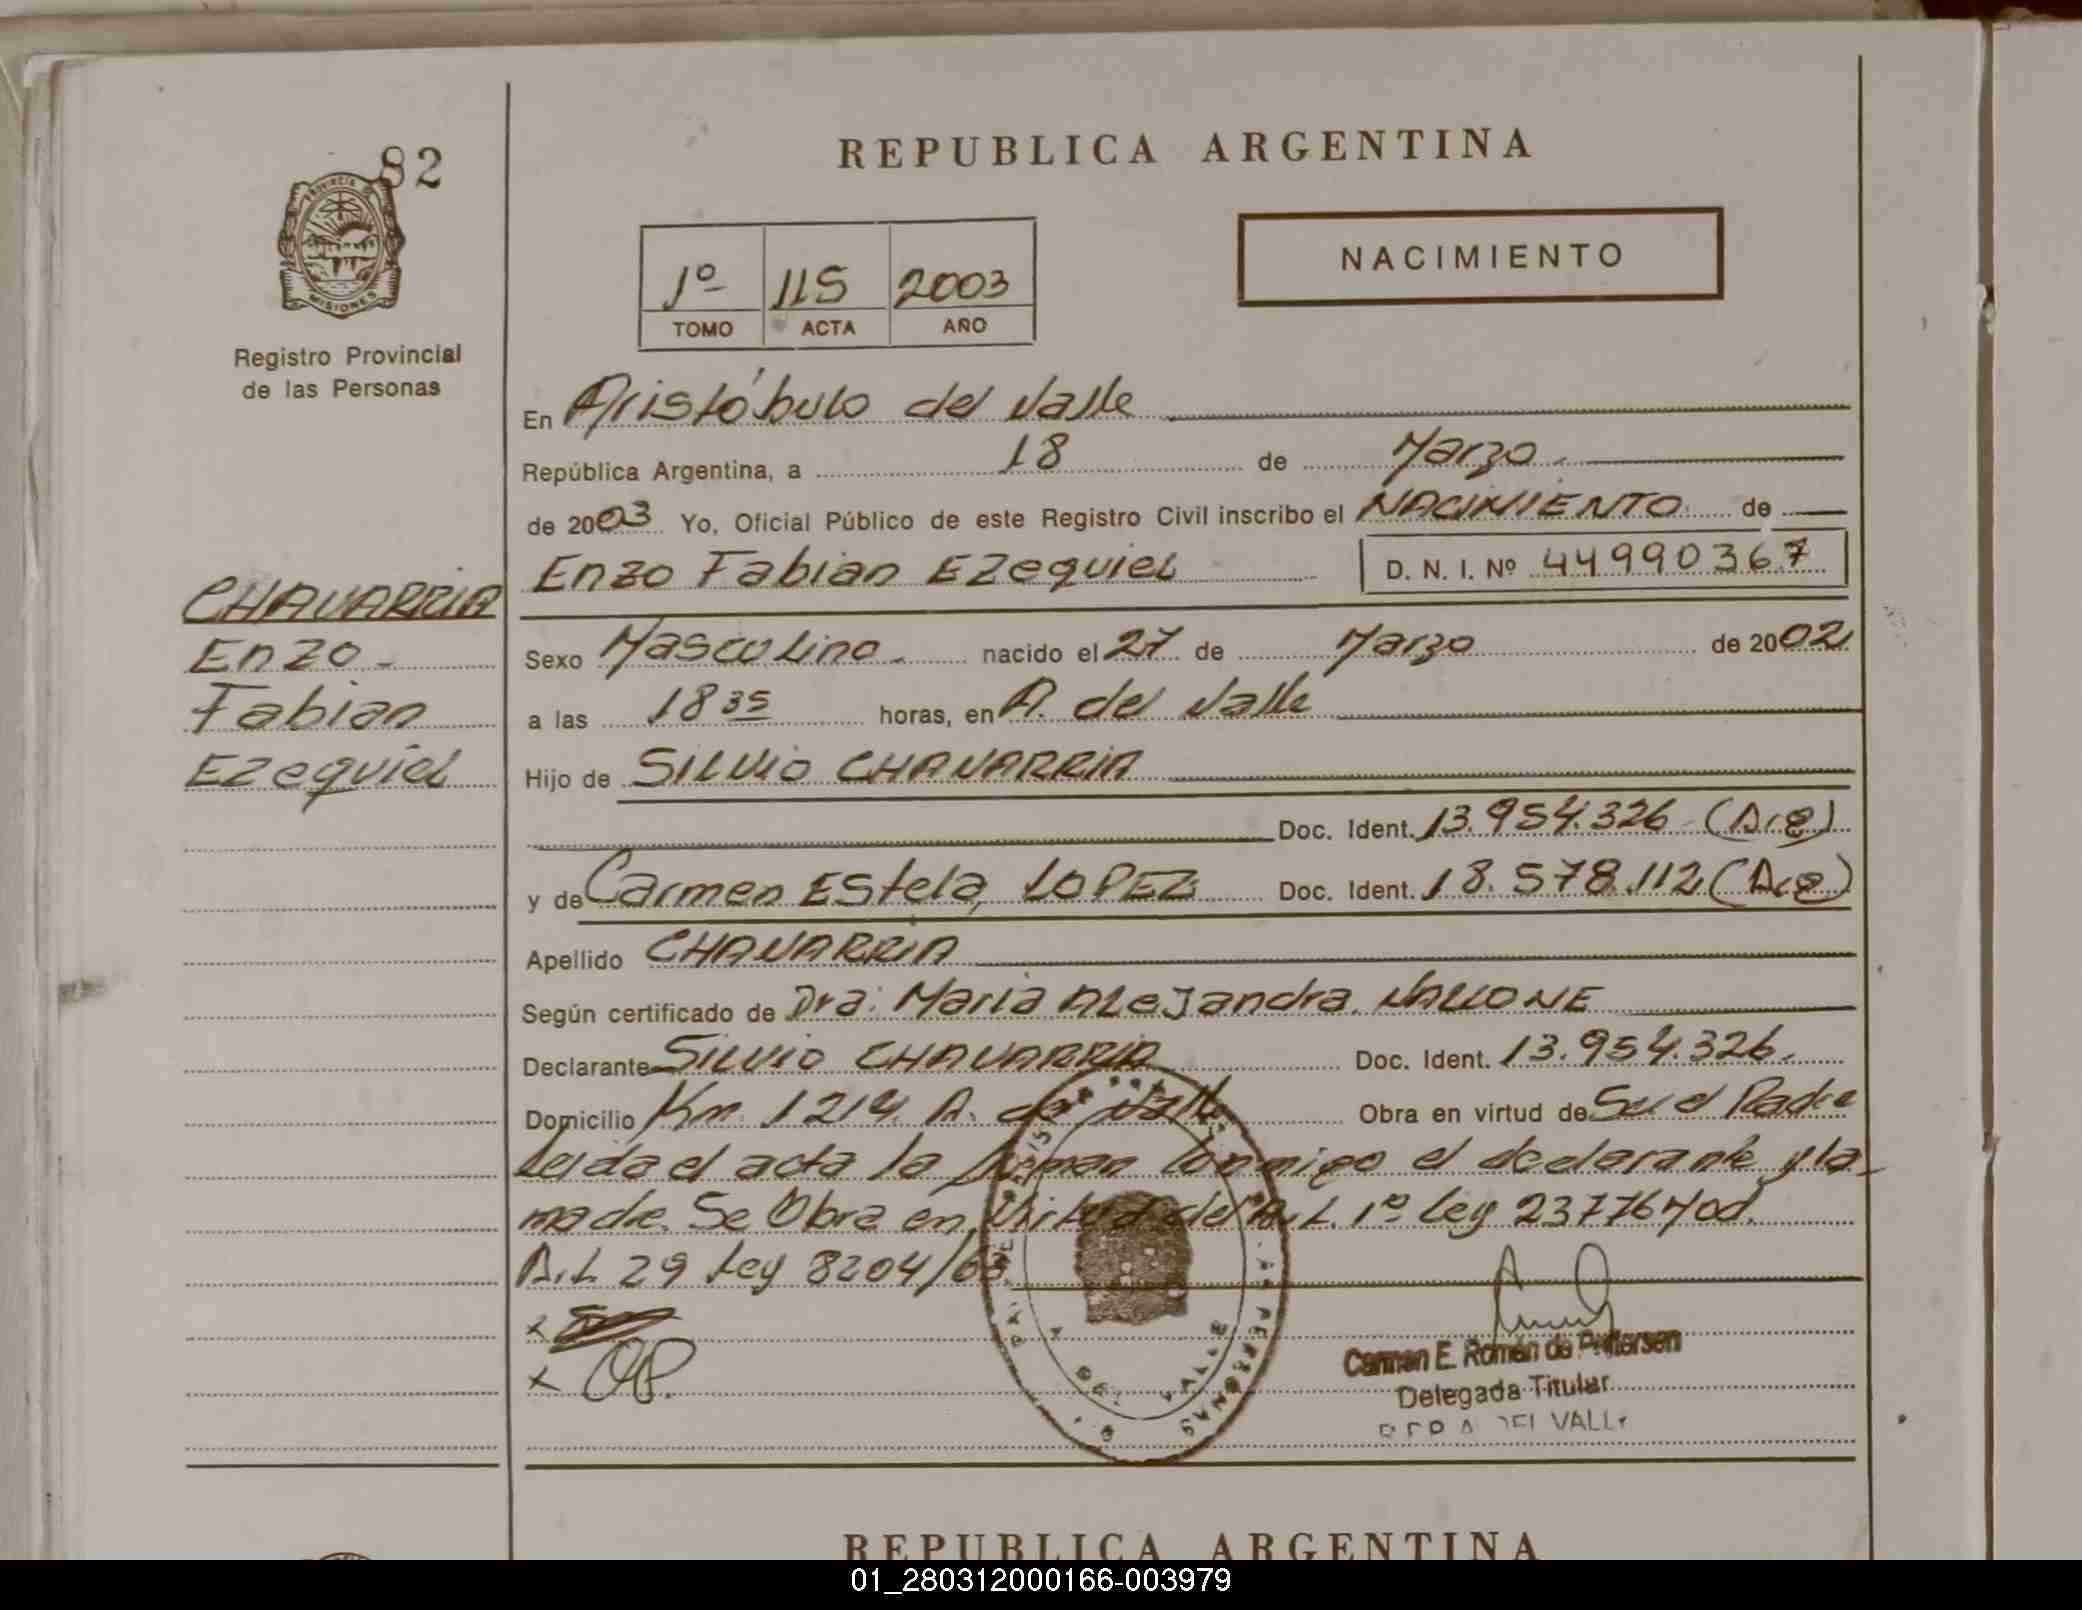 82
PROVINCIA DE
MISIONES
Registro Provincial
de las Personas
CHAVARRIA
Enzo -
Fabian
Ezequiel
REPUBLICA ARGENTINA
1º 115 2003
TOMO ACTA AÑO
NACIMIENTO
En Aristóbulo del Valle
República Argentina, a 18 de Marzo
de 2003 Yo, Oficial Público de este Registro Civil inscribo el NACIMIENTO de
Enzo Fabian Ezequiel D. N. I. Nº 44990367
Sexo Masculino nacido el 27 de Marzo de 2002
a las 18 35 horas, en A. del Valle
Hijo de Silvio CHAVARRIA
Doc. Ident. 13.954.326 (Arg)
y de Carmen Estela LOPEZ Doc. Ident. 18.578.112 (Arg)
Apellido CHAVARRIA
Según certificado de Dra: Maria Alejandra
Declarante Silvio CHAVARRIA Doc. Ident. 13.954.326.
Domicilio Km. 1214 A. del Valle Obra en virtud de Ser el Padre
Leida el acta la firman conmigo el declarante y la
madre. Se Obra en Virtud del Art. 1º Ley 23776 Mod.
Art. 29 Ley 8204/63
x
x
DEL VALLE
PERSONAS
Carmen E. Román de
Delegada Titular
DEL VALLE
REPUBLICA ARGENTINA
01_280312000166-003979